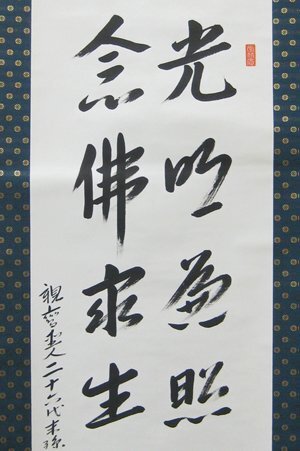 光明品照
念佛求生
親鸞聖人二十六代末孫